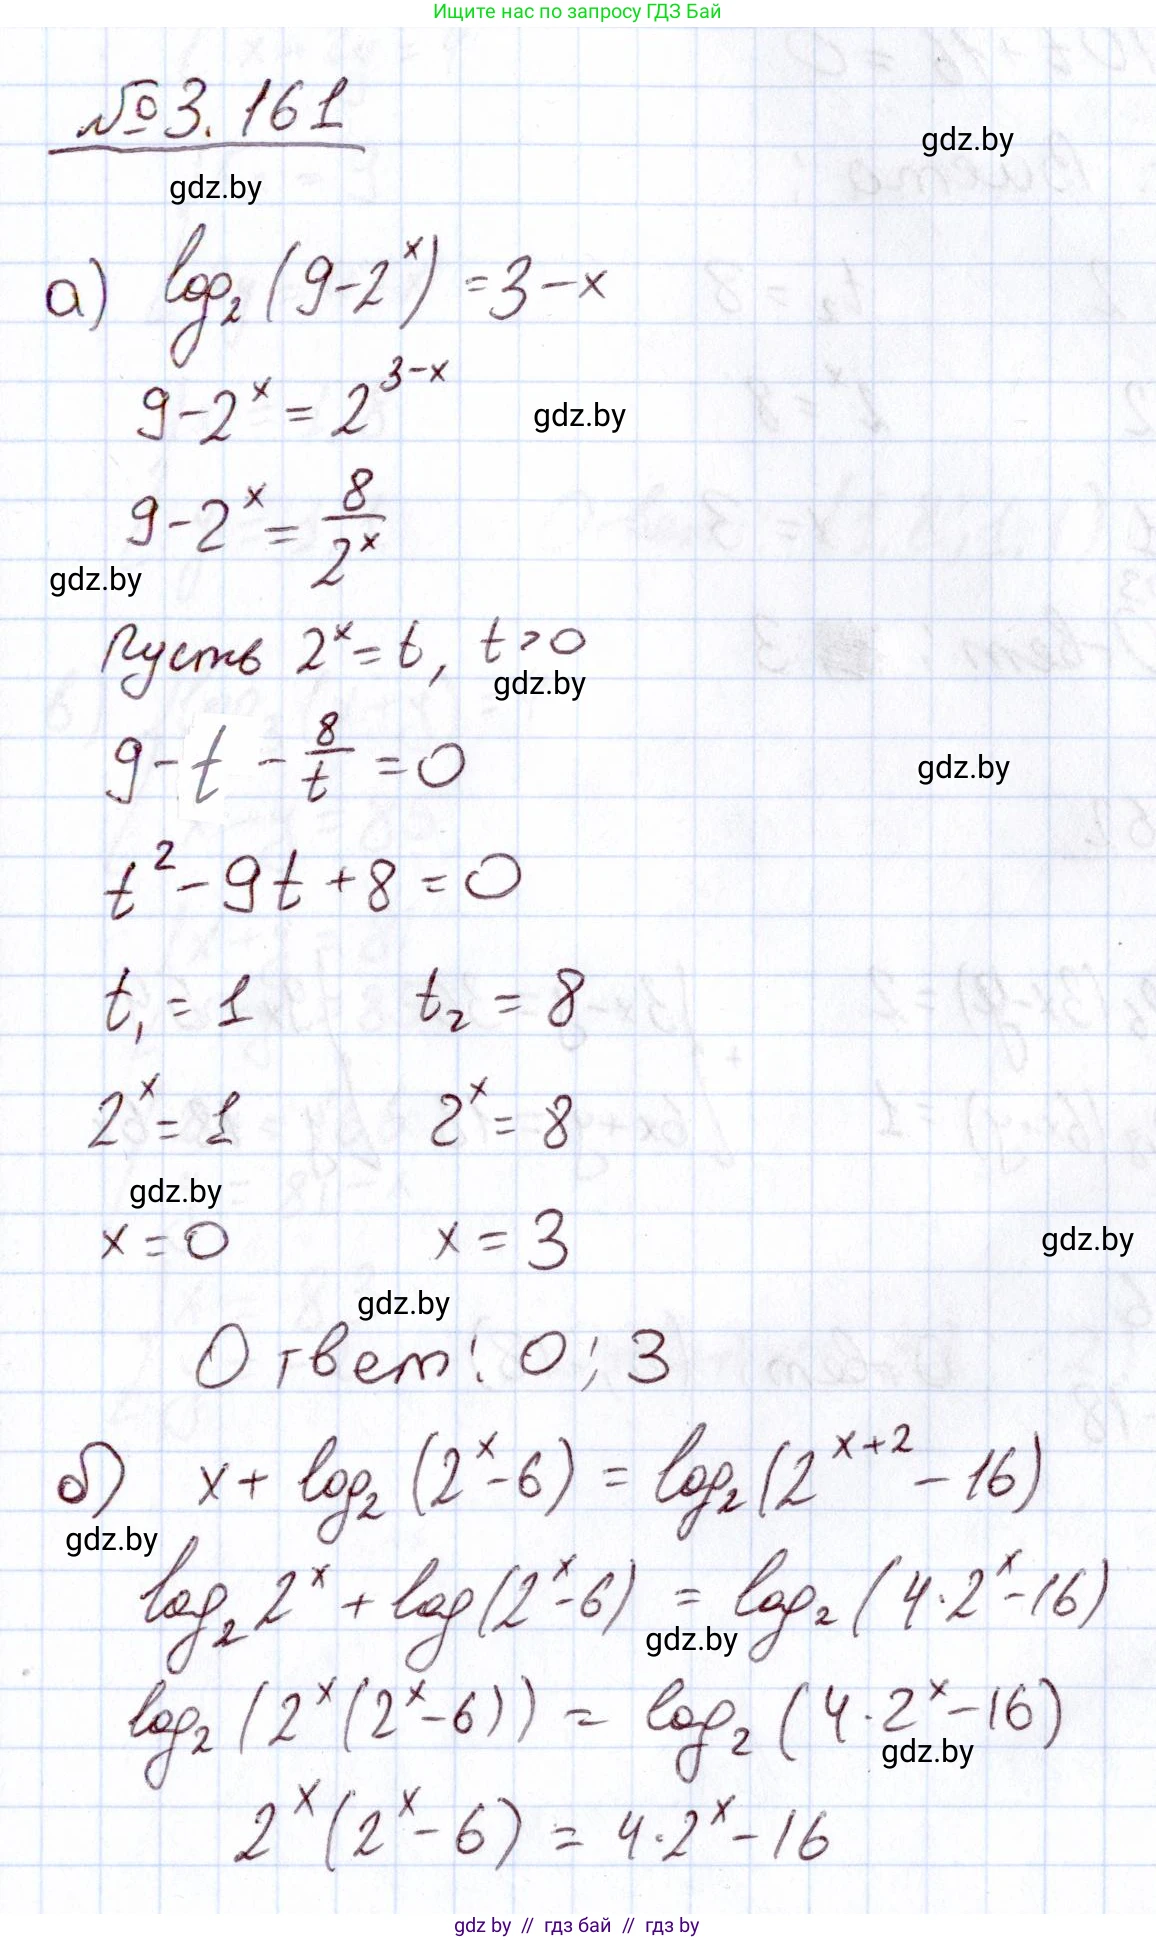 Ищите нас по запросу ГДЗ Бай
№3.161
gdz.by
gdz.by
а) log₂(9-2ˣ) = 3-x
9-2ˣ = 2³⁻ˣ
gdz.by
9-2ˣ = 8/2ˣ
gdz.by
Пусть 2ˣ = t, t>0
gdz.by
9-t - 8/t = 0
gdz.by
t² - 9t + 8 = 0
t₁ = 1 t₂ = 8
2ˣ = 1 2ˣ = 8
gdz.by
x = 0 x = 3
gdz.by
gdz.by
Ответ: 0; 3
б) x + log₂(2ˣ-6) = log₂(2ˣ⁺² - 16)
gdz.by
log₂2ˣ + log(2ˣ-6) = log₂(4·2ˣ-16)
gdz.by
log₂(2ˣ(2ˣ-6)) = log₂(4·2ˣ-16)
gdz.by
2ˣ(2ˣ-6) = 4·2ˣ-16
gdz by // гдз бай // гдз by